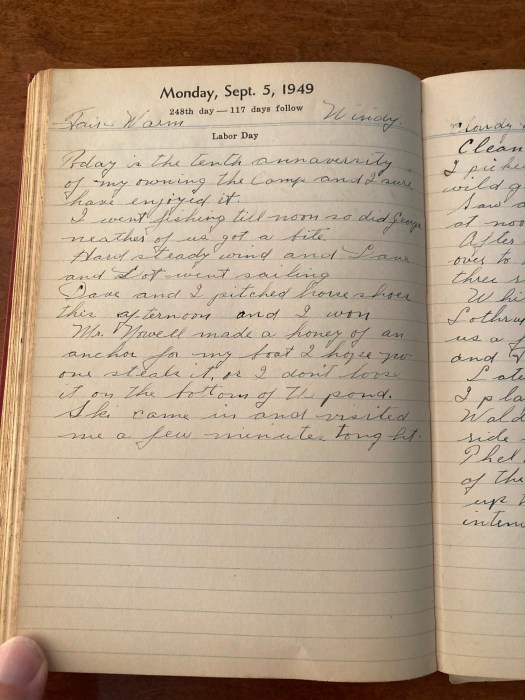 Monday, Sept. 5, 1949
248th day — 117 days follow
Fair Warm Windy.
Labor Day
Today is the tenth annaversity
of my owning the Camp and I sure
have enjoyed it.
I went fishing till noon so did George
neather of us got a bite
Hard steady wind and Dave
and Dot went sailing
Dave and I pitched horse shoes
this afternoon and I won
Mr. Howell made a honey of an
anchor for my boat I hope no
one steals it, or I don't loos
it on the bottom of the pond.
Ski came in and visited
me a few minutes tonght.
Cloudy
Clean
I picke
wild g
Saw a
at noo
After
over to
three r
Whi
Lothro
us a f
and
Late
I pla
Wald
ride
Phel
of the
up
inten